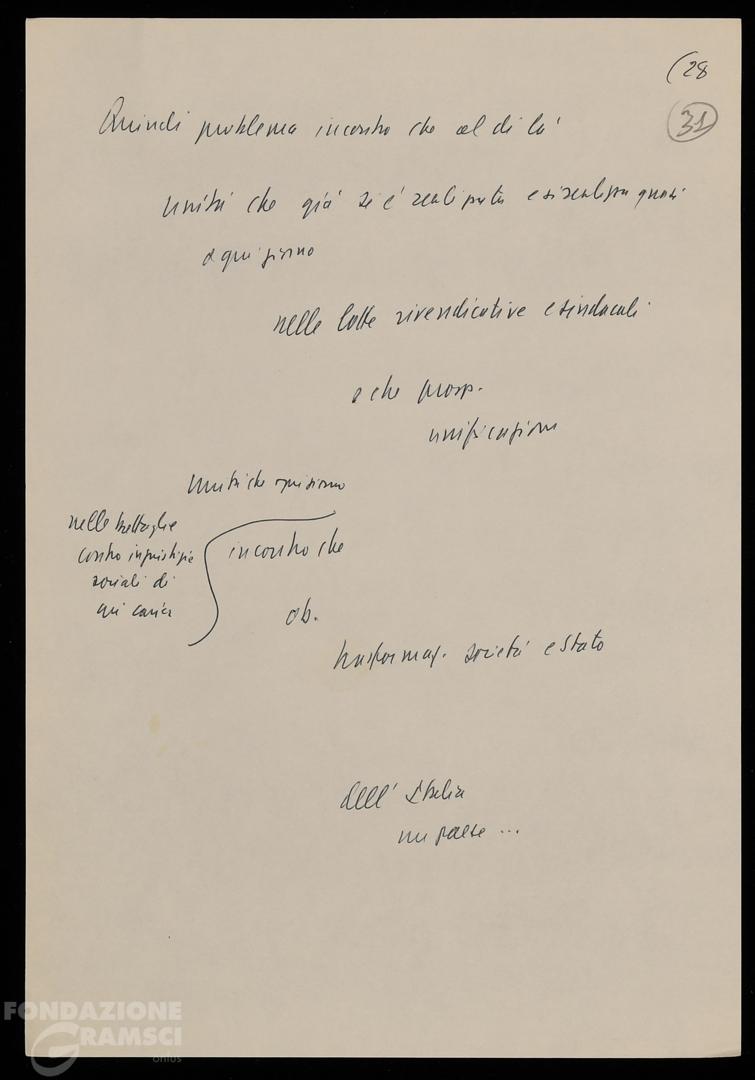 (28
31
Quindi problema incontro che al di là
unità che già si è realizzata e si realizza quasi
ogni giorno
nelle lotte rivendicative e sindacali
e che prosp.
unificazione
unità che
nelle battaglie
contro ingiustizie
sociali di
incontro che
ob.
trasformaz. società e Stato
dell' Italia
un paese ...
FONDAZIONE
GRAMSCI
onlus